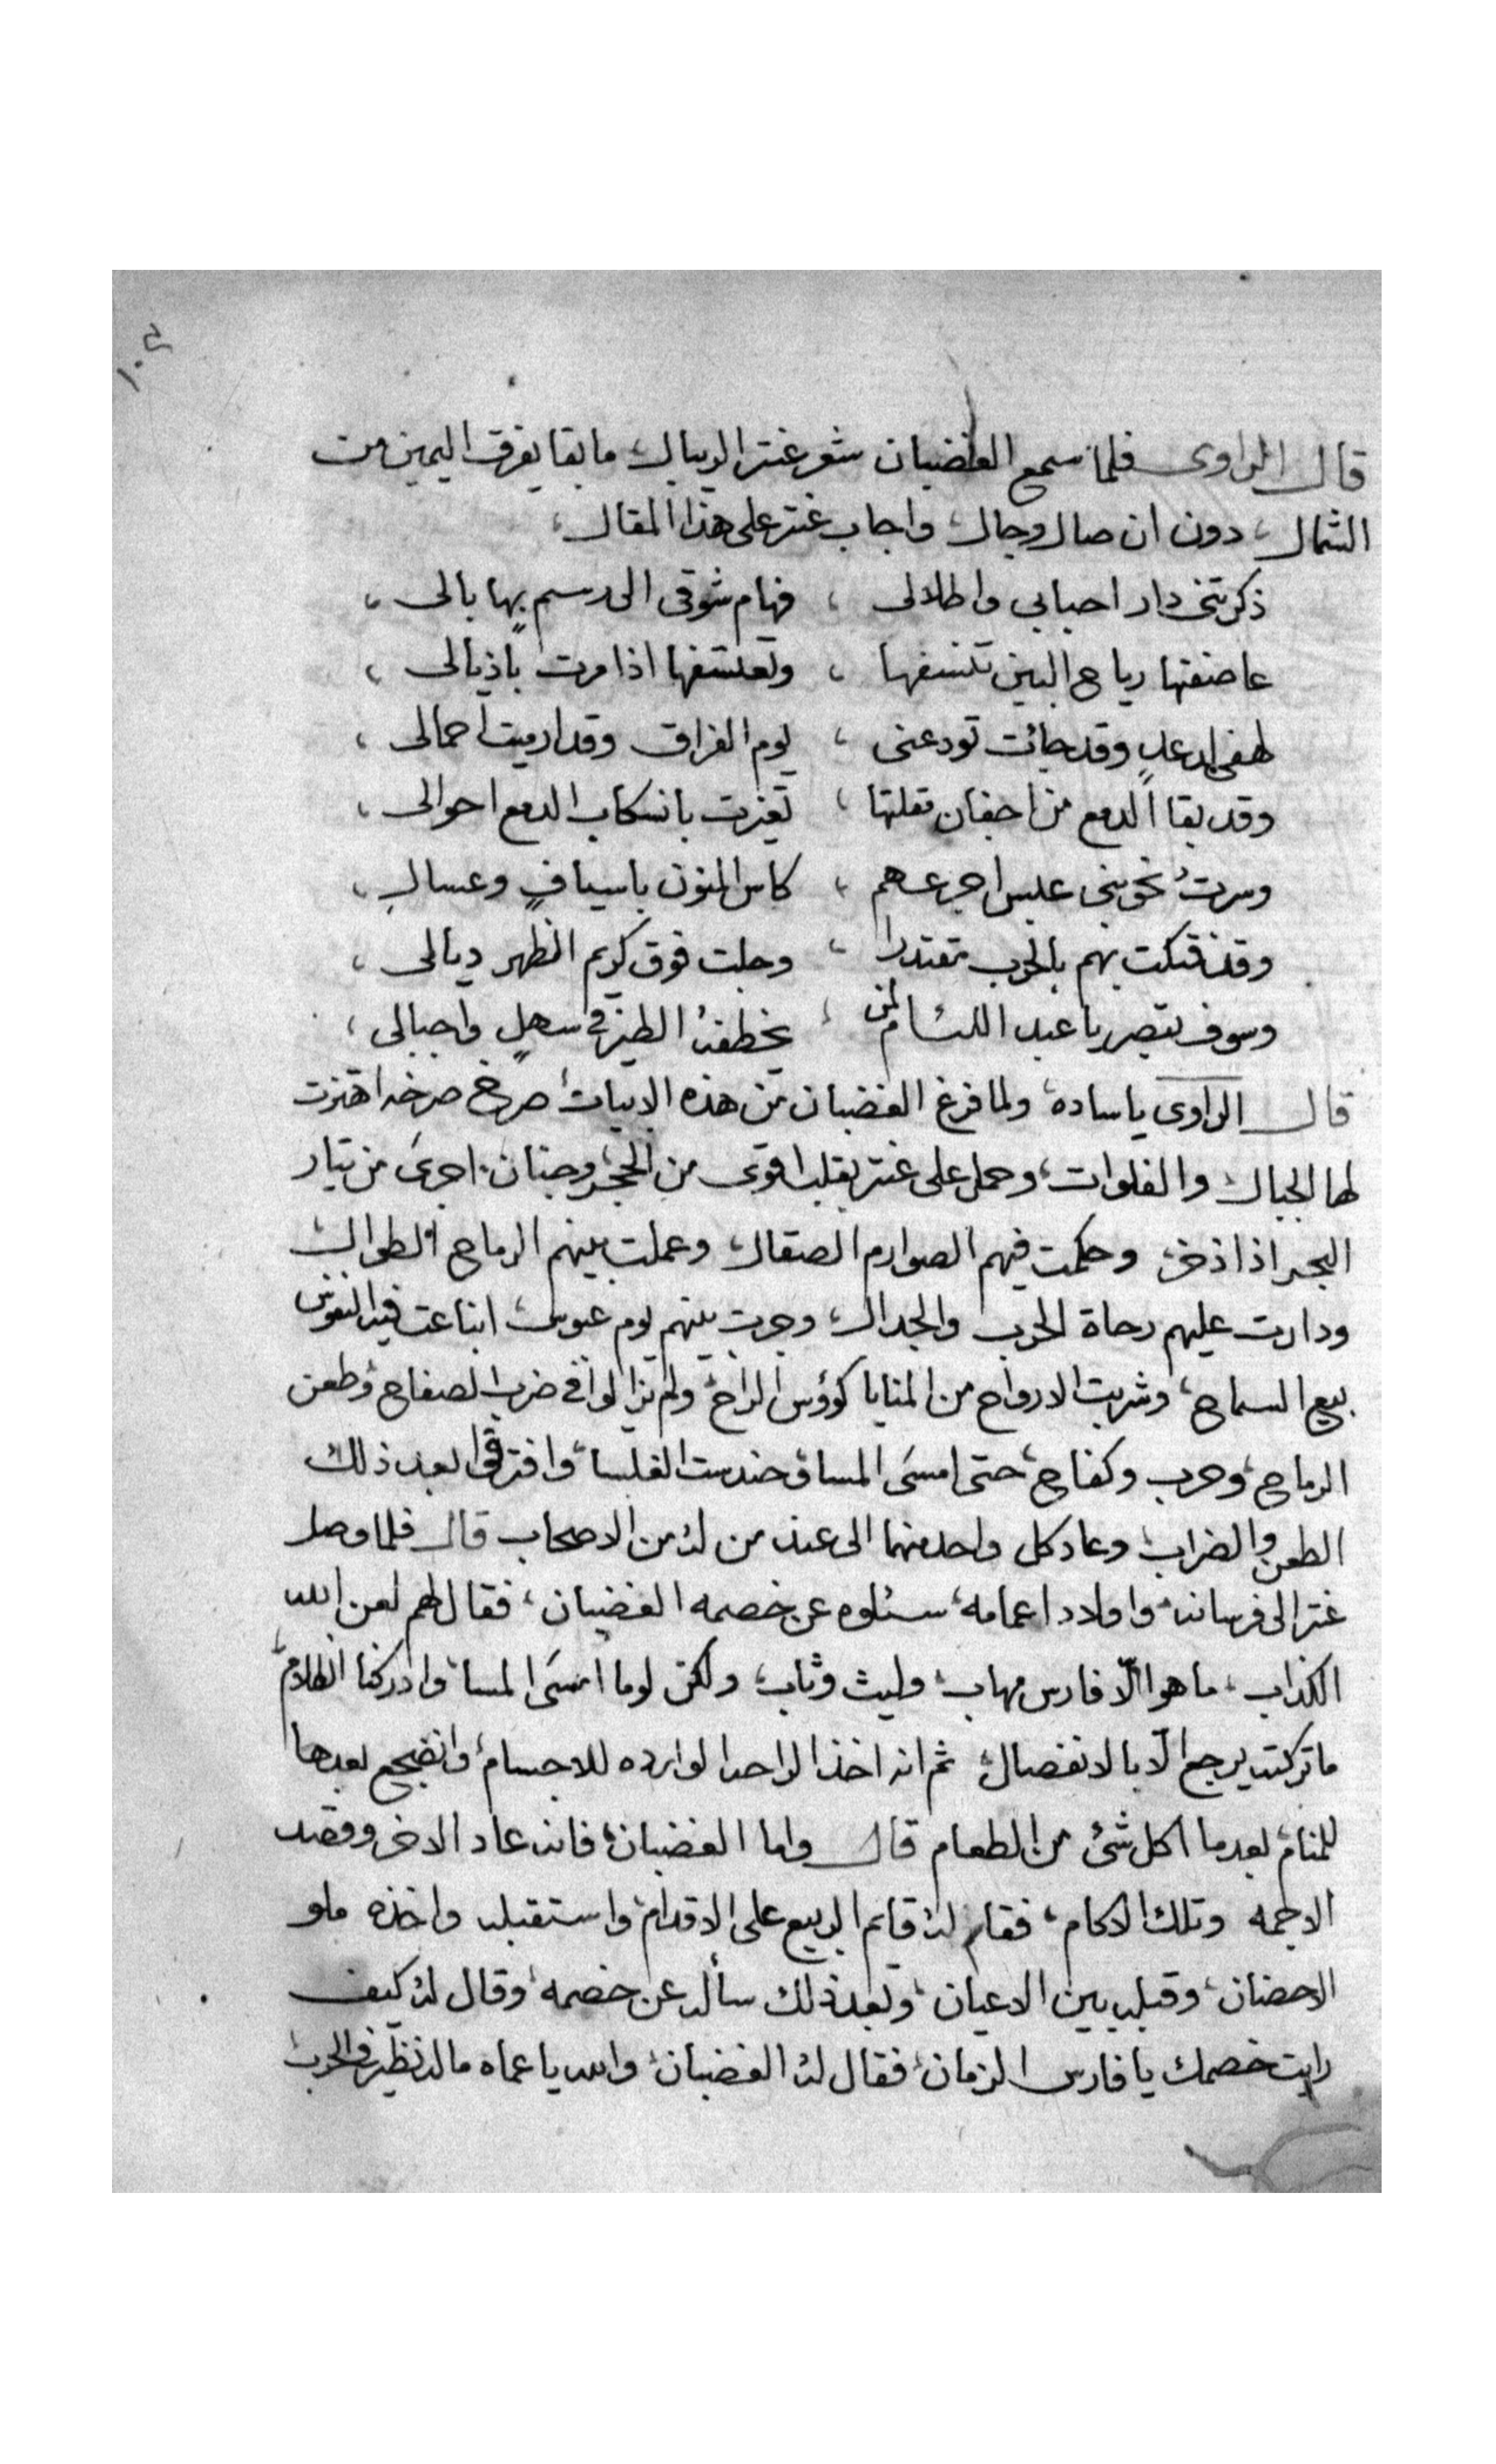 ١٠٥
قال الراوى فلما سمع الغضبان شعر عنتر الريبال، ما بقا يفرق اليمين من
الشمال، دون ان صال وجال، واجاب عنتر على هذا المقال،
ذكرتنى دار احبابى واطلالى ، فهام شوقى الى رسم بها بالى ،
عاصفتها رياح البين تنسفها ، وتعسفها اذا مرت باذيالى ،
لهفى لدعدٍ وقد جائت تودعنى ، يوم الفراق وقد ارميت احمالى ،
وقد بقا الدمع من اجفان مقلتها ، تغيرت بانسكاب الدمع احوالى ،
وسرتُ نحو بنى عبس اجرعهم ، كاس المنون باسيافٍ وعسالِ ،
وقد فتكت بهم بالحرب مقتدرا ، وجلت فوق كريم الظهر ديالى ،
وسوف تبصر يا عبد اللئام لمن ، يخطفهُ الطير فى سهلٍ واجبالى ،
قال الراوى يا ساده، ولما فرغ الغضبان من هذه الابيات، صرخ صرخه اهتزت
لها الجبال والفلوات، وحمل على عنتر بقلب اقوى من الحجر، وجنان اجرى من تيار
البحر اذا ذخر، وحكمت فيهم الصوارم الصقال، وعملت بينهم الرماح الطوال
ودارت عليهم رحاة الحرب والجدال، وجرت بينهم يوم عبوس، ابتاعت فيه النفوس
بيع السماح، وشربت الارواح من المنايا كوؤس الراح، ولم يزالوا فى ضرب الصفاح، وطعن
الرماح، وحرب وكفاح، حتى امسَى المسا، وحندست الغلسا، وافترقوا بعد ذلك
الطعن والضراب، وعاد كل واحد منهما الى عند من له من الاصحاب قال فلما وصل
عنتر الى فرسانه، واولاد اعمامه، سئلوه عن خصمه الغضبان، فقال لهم لعن الله
الكذاب، ما هو الّا فارس مهاب، وليث وثاب، ولكن لوما امسَى المسا، وادركنا الظلام،
ما تركته يرجع الّا بالانفصال، ثم انه اخذ الراحه الوارده للاجسام، وانضجع بعدها
للمنام، بعد ما اكل شئ من الطعام قال واما الغضبان، فانه عاد الاخر وقصد
الاجمه وتلك الاكام، فقام له قائم الربيع على الاقدام، واستقبله واخذه ملو
الاحضان، وقبله بين الاعيان، وبعد ذلك سأله عن خصمه، وقال له كيف
رايت خصمك يا فارس الزمان، فقال له الغضبان، والله يا عماه ما له نظير فى الحرب